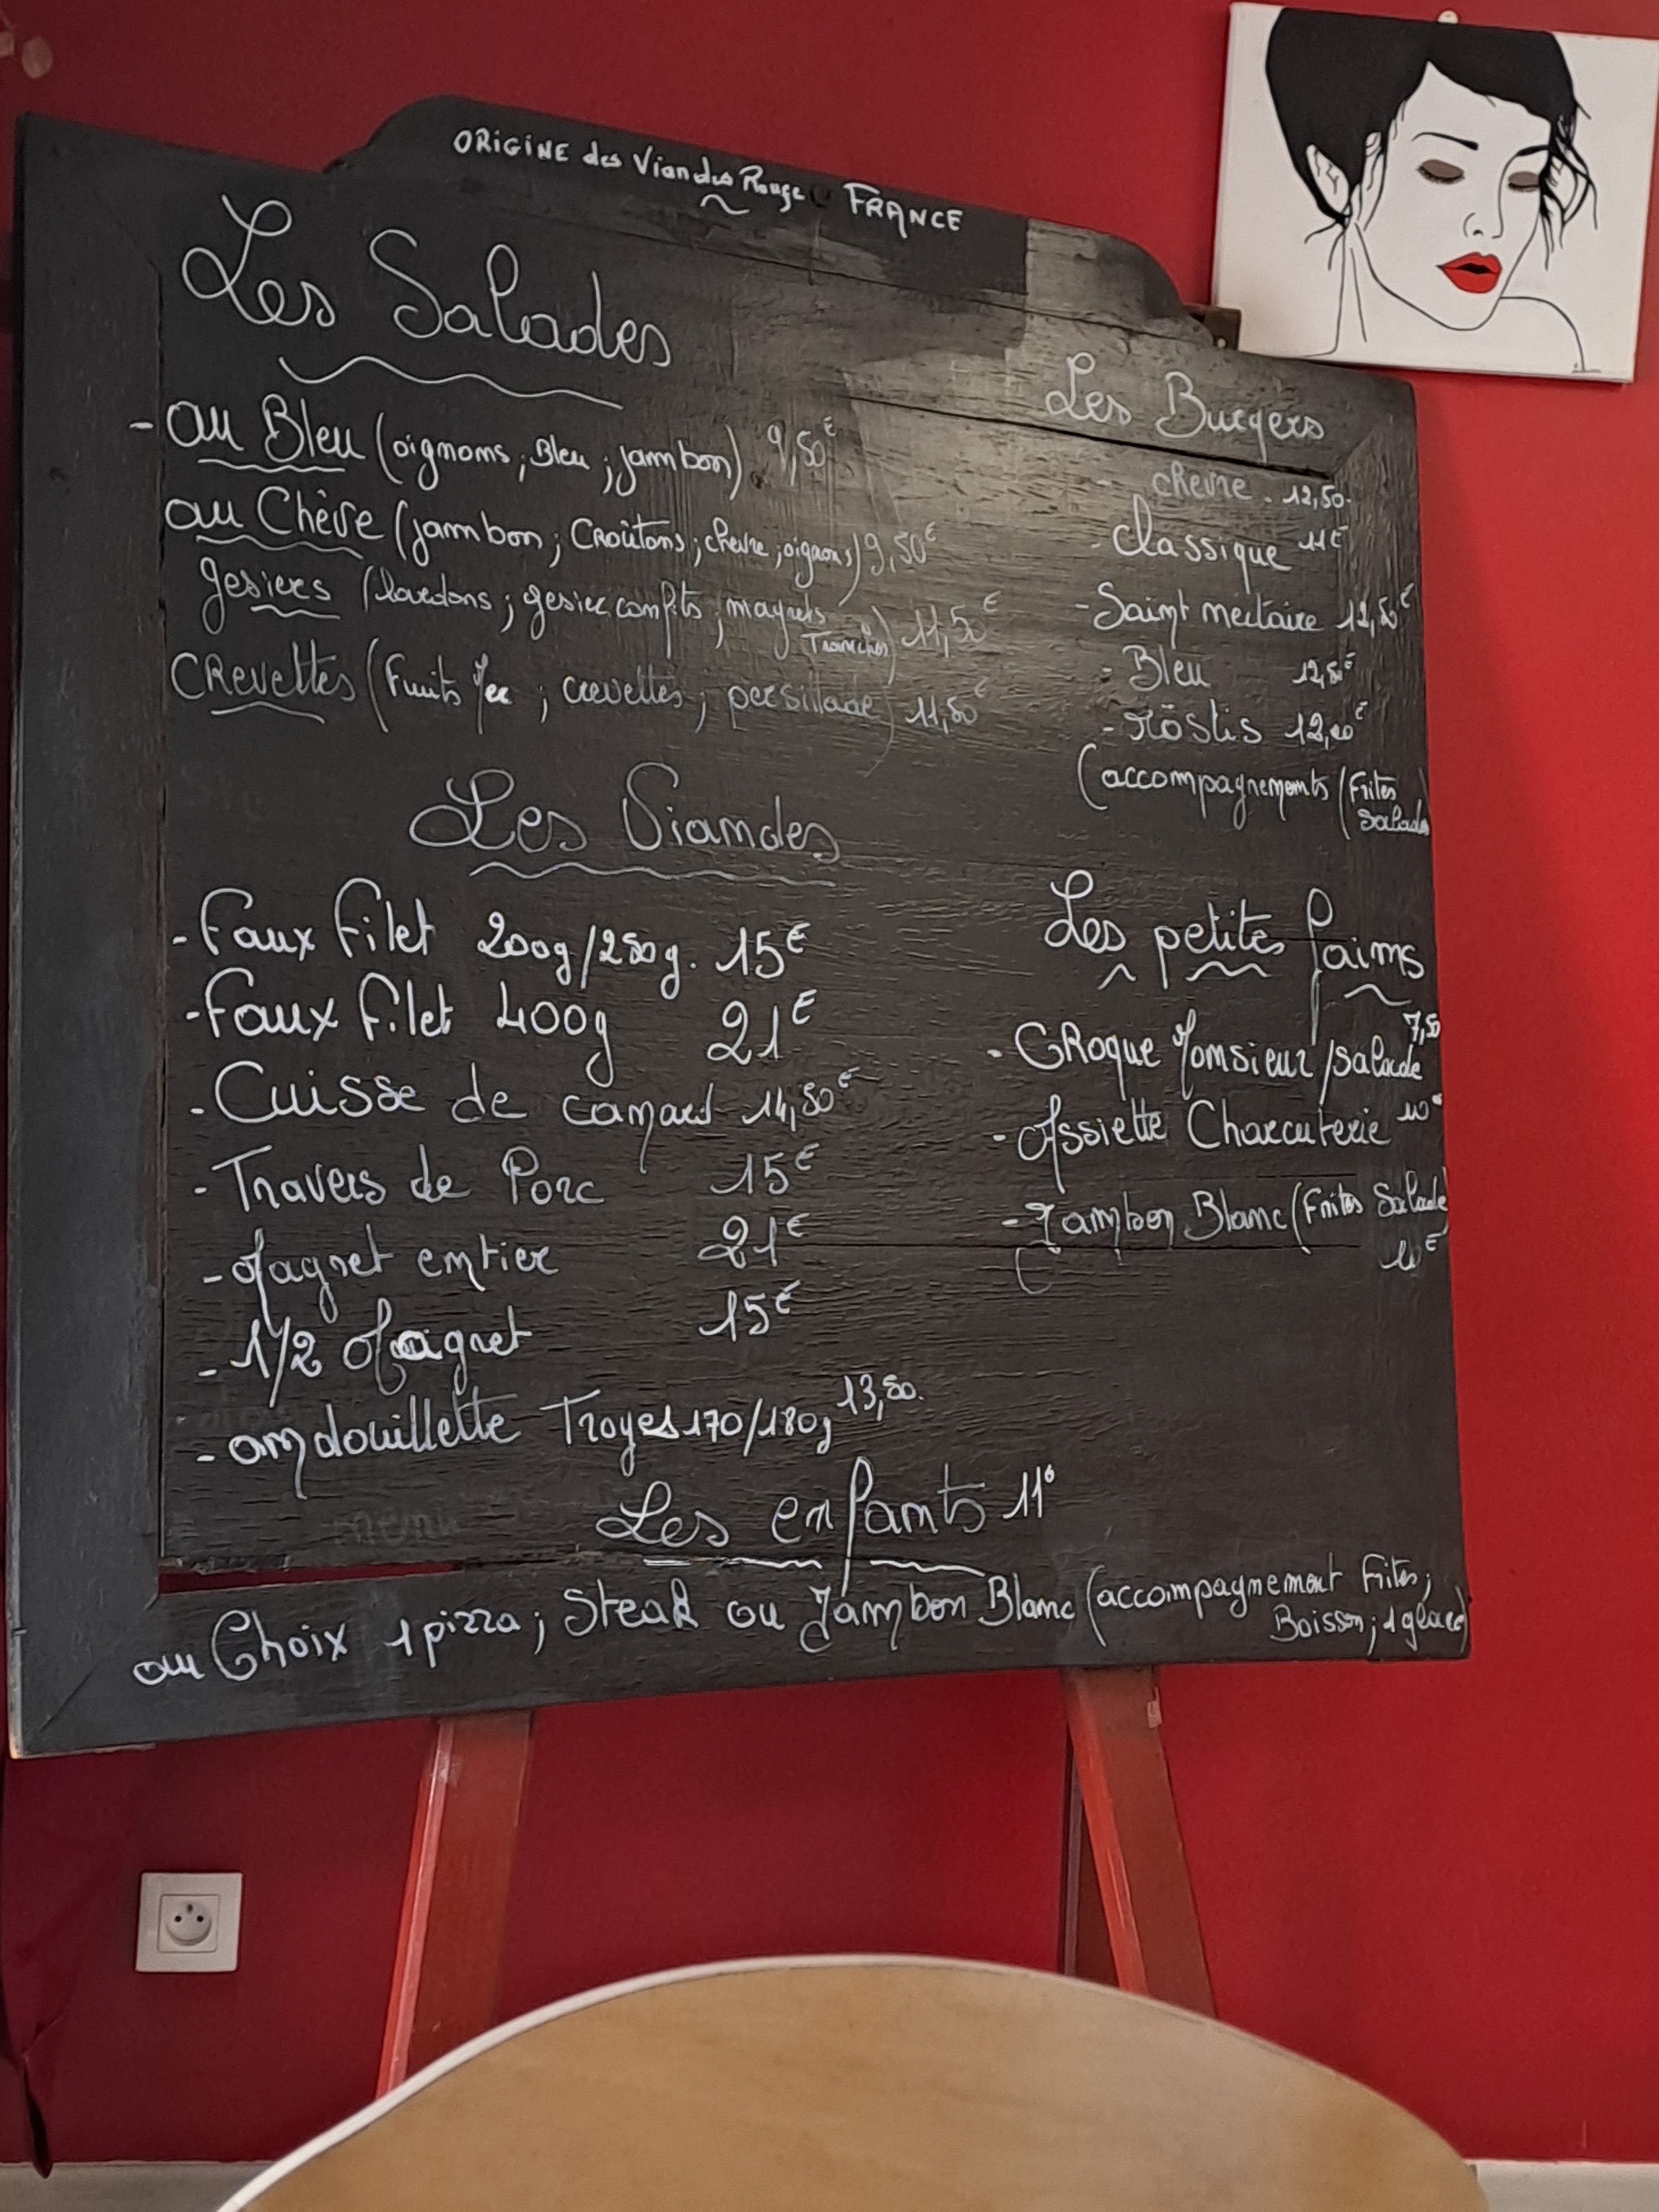 ORIGINE des Viandes Rouge FRANCE
Les Salades
- au Bleu (oignons ; Bleu ; jambon) 9,50€
au Chèvre (jambon ; Croûtons ; chevre ; oignons) 9,50€
gesiers (lardons ; gesier confits ; magrets Tranches) 11,50€
CRevettes (Fruits Mer ; crevettes ; persillade) 11,50€
Les Viandes
- Faux filet 200g/250g. 15€
- Faux filet 400g 21€
- Cuisse de canard 14,50€
- Travers de Porc 15€
- Magret entier 21€
- 1/2 Magret 15€
- andouillette Troyes 170/180g 13,50.
Les Burgers
- chevre . 12,50.
- Classique 11€
- Saint nectaire 12,50€
- Bleu 12,50€
- Röstis 12,00€
(accompagnements (Frites
Salade
Les petites faims
- CRoque Monsieur /salade 7,50
- Assiette Charcuterie 10€
- Jambon Blanc (Frites Salade
10€
Les enfants 11€
au Choix 1 pizza ; Steak ou Jambon Blanc (accompagnement Frites ;
Boisson ; 1 glace)